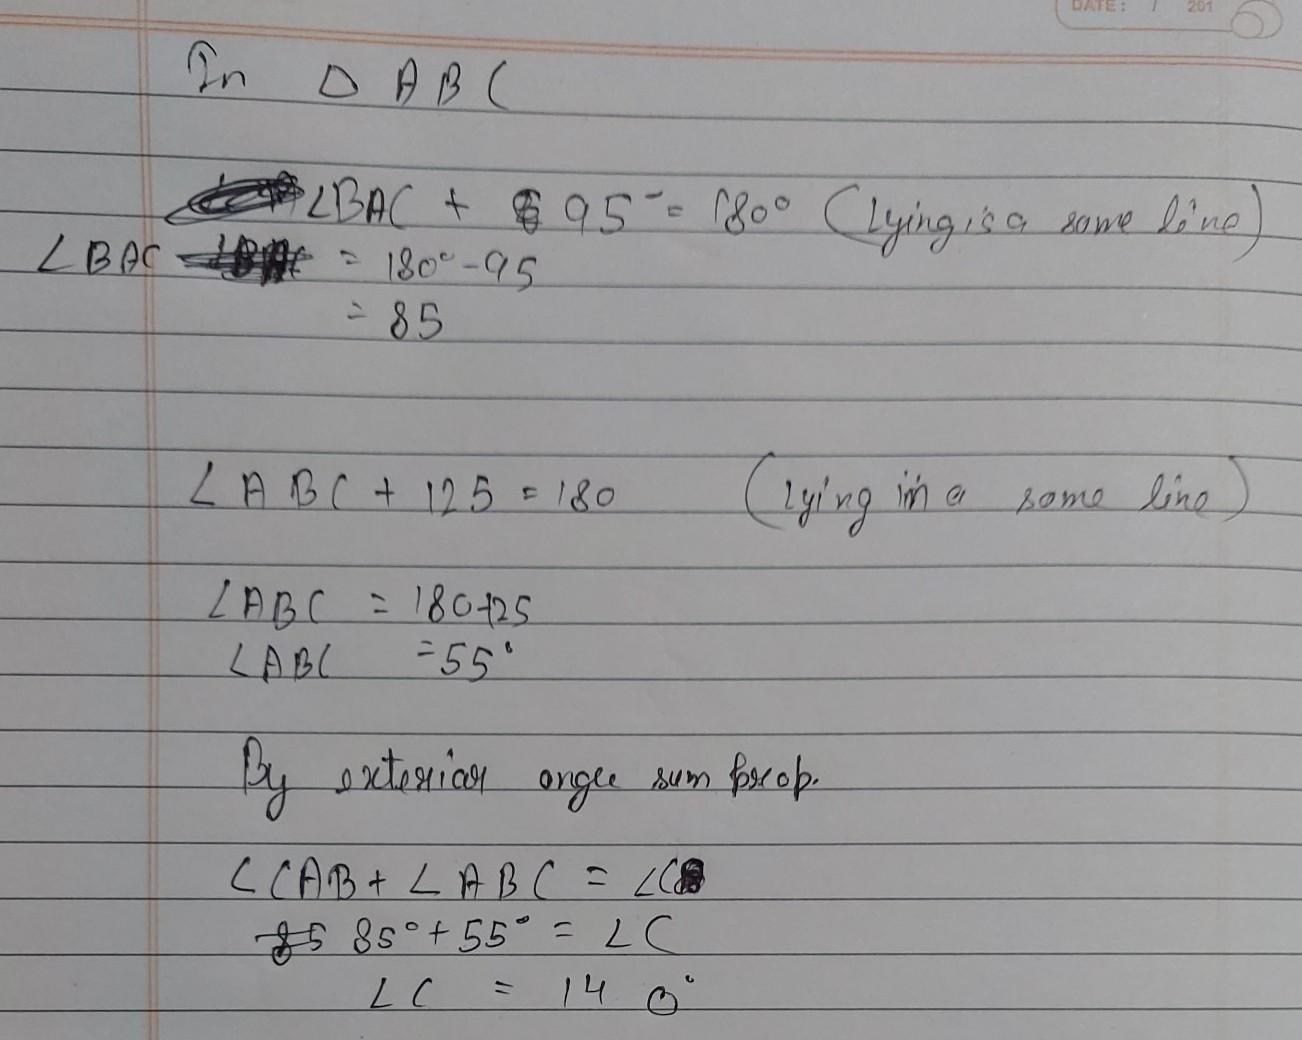 DATE: / 201
In △ ABC
∠BAC + 95 = 180° (Lying is a same line)
∠BAC = 180° - 95
= 85
∠ABC + 125 = 180 (lying in a same line)
∠ABC = 180-125
∠ABC = 55°
By exterior angle sum prop.
∠CAB + ∠ABC = ∠C
85° + 55° = ∠C
∠C = 140°